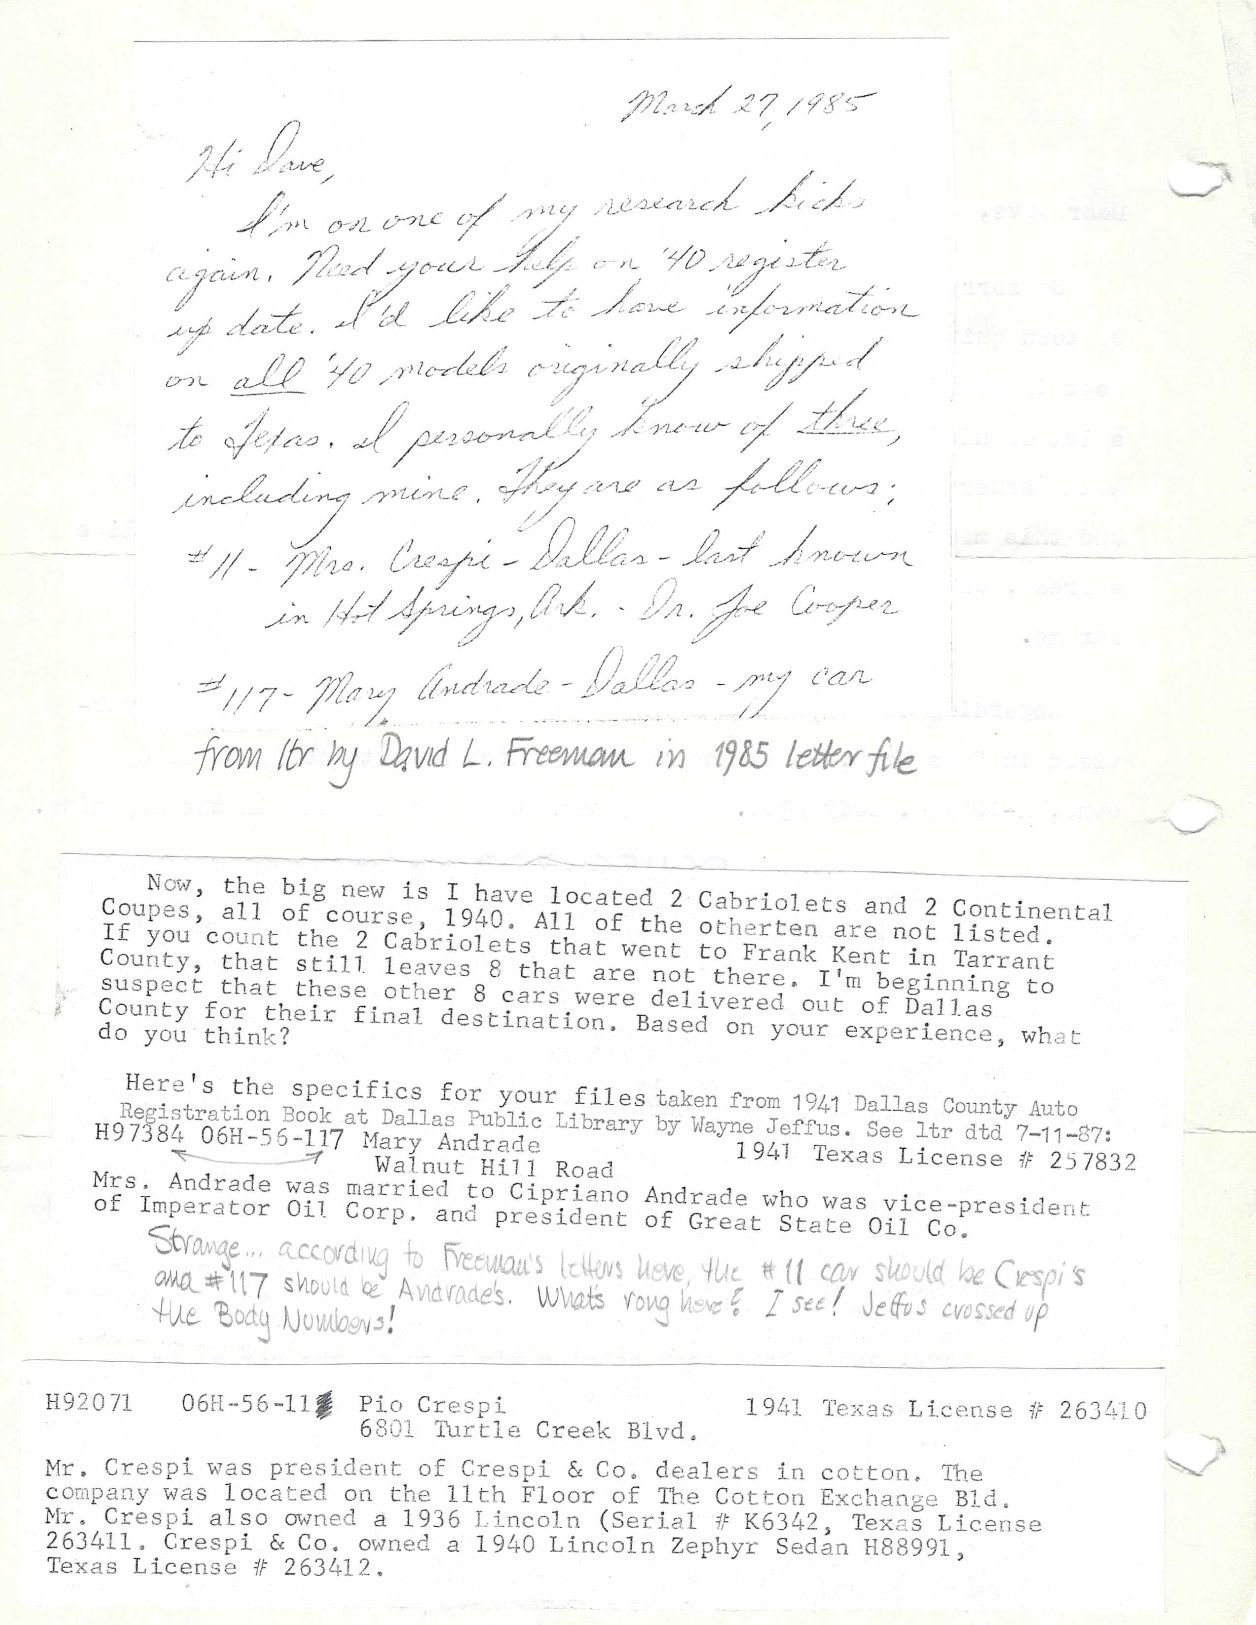 March 27, 1985
Hi Dave,
I'm on one of my research kicks
again. Need your help on '40 register
up date. I'd like to have information
on all '40 models originally shipped
to Texas. I personally know of three,
including mine. They are as follows:
#11 - Mrs. Crespi - Dallas - last known
in Hot Springs, Ark. - Dr. Joe Cooper
#117 - Mary Andrade - Dallas - my car
from ltr by David L. Freeman in 1985 letter file
Now, the big new is I have located 2 Cabriolets and 2 Continental
Coupes, all of course, 1940. All of the otherten are not listed.
If you count the 2 Cabriolets that went to Frank Kent in Tarrant
County, that still leaves 8 that are not there. I'm beginning to
suspect that these other 8 cars were delivered out of Dallas
County for their final destination. Based on your experience, what
do you think?
Here's the specifics for your files taken from 1941 Dallas County Auto
Registration Book at Dallas Public Library by Wayne Jeffus. See ltr dtd 7-11-87:
H97384 06H-56-117 Mary Andrade 1941 Texas License # 257832
Walnut Hill Road
Mrs. Andrade was married to Cipriano Andrade who was vice-president
of Imperator Oil Corp. and president of Great State Oil Co.
Strange... according to Freeman's letters here, the #11 car should be Crespi's
and #117 should be Andrade's. What's rong here? I see! Jeffus crossed up
the Body Numbers!
H92071 06H-56-11 Pio Crespi 1941 Texas License # 263410
6801 Turtle Creek Blvd.
Mr. Crespi was president of Crespi & Co. dealers in cotton. The
company was located on the 11th Floor of The Cotton Exchange Bld.
Mr. Crespi also owned a 1936 Lincoln (Serial # K6342, Texas License
263411. Crespi & Co. owned a 1940 Lincoln Zephyr Sedan H88991,
Texas License # 263412.